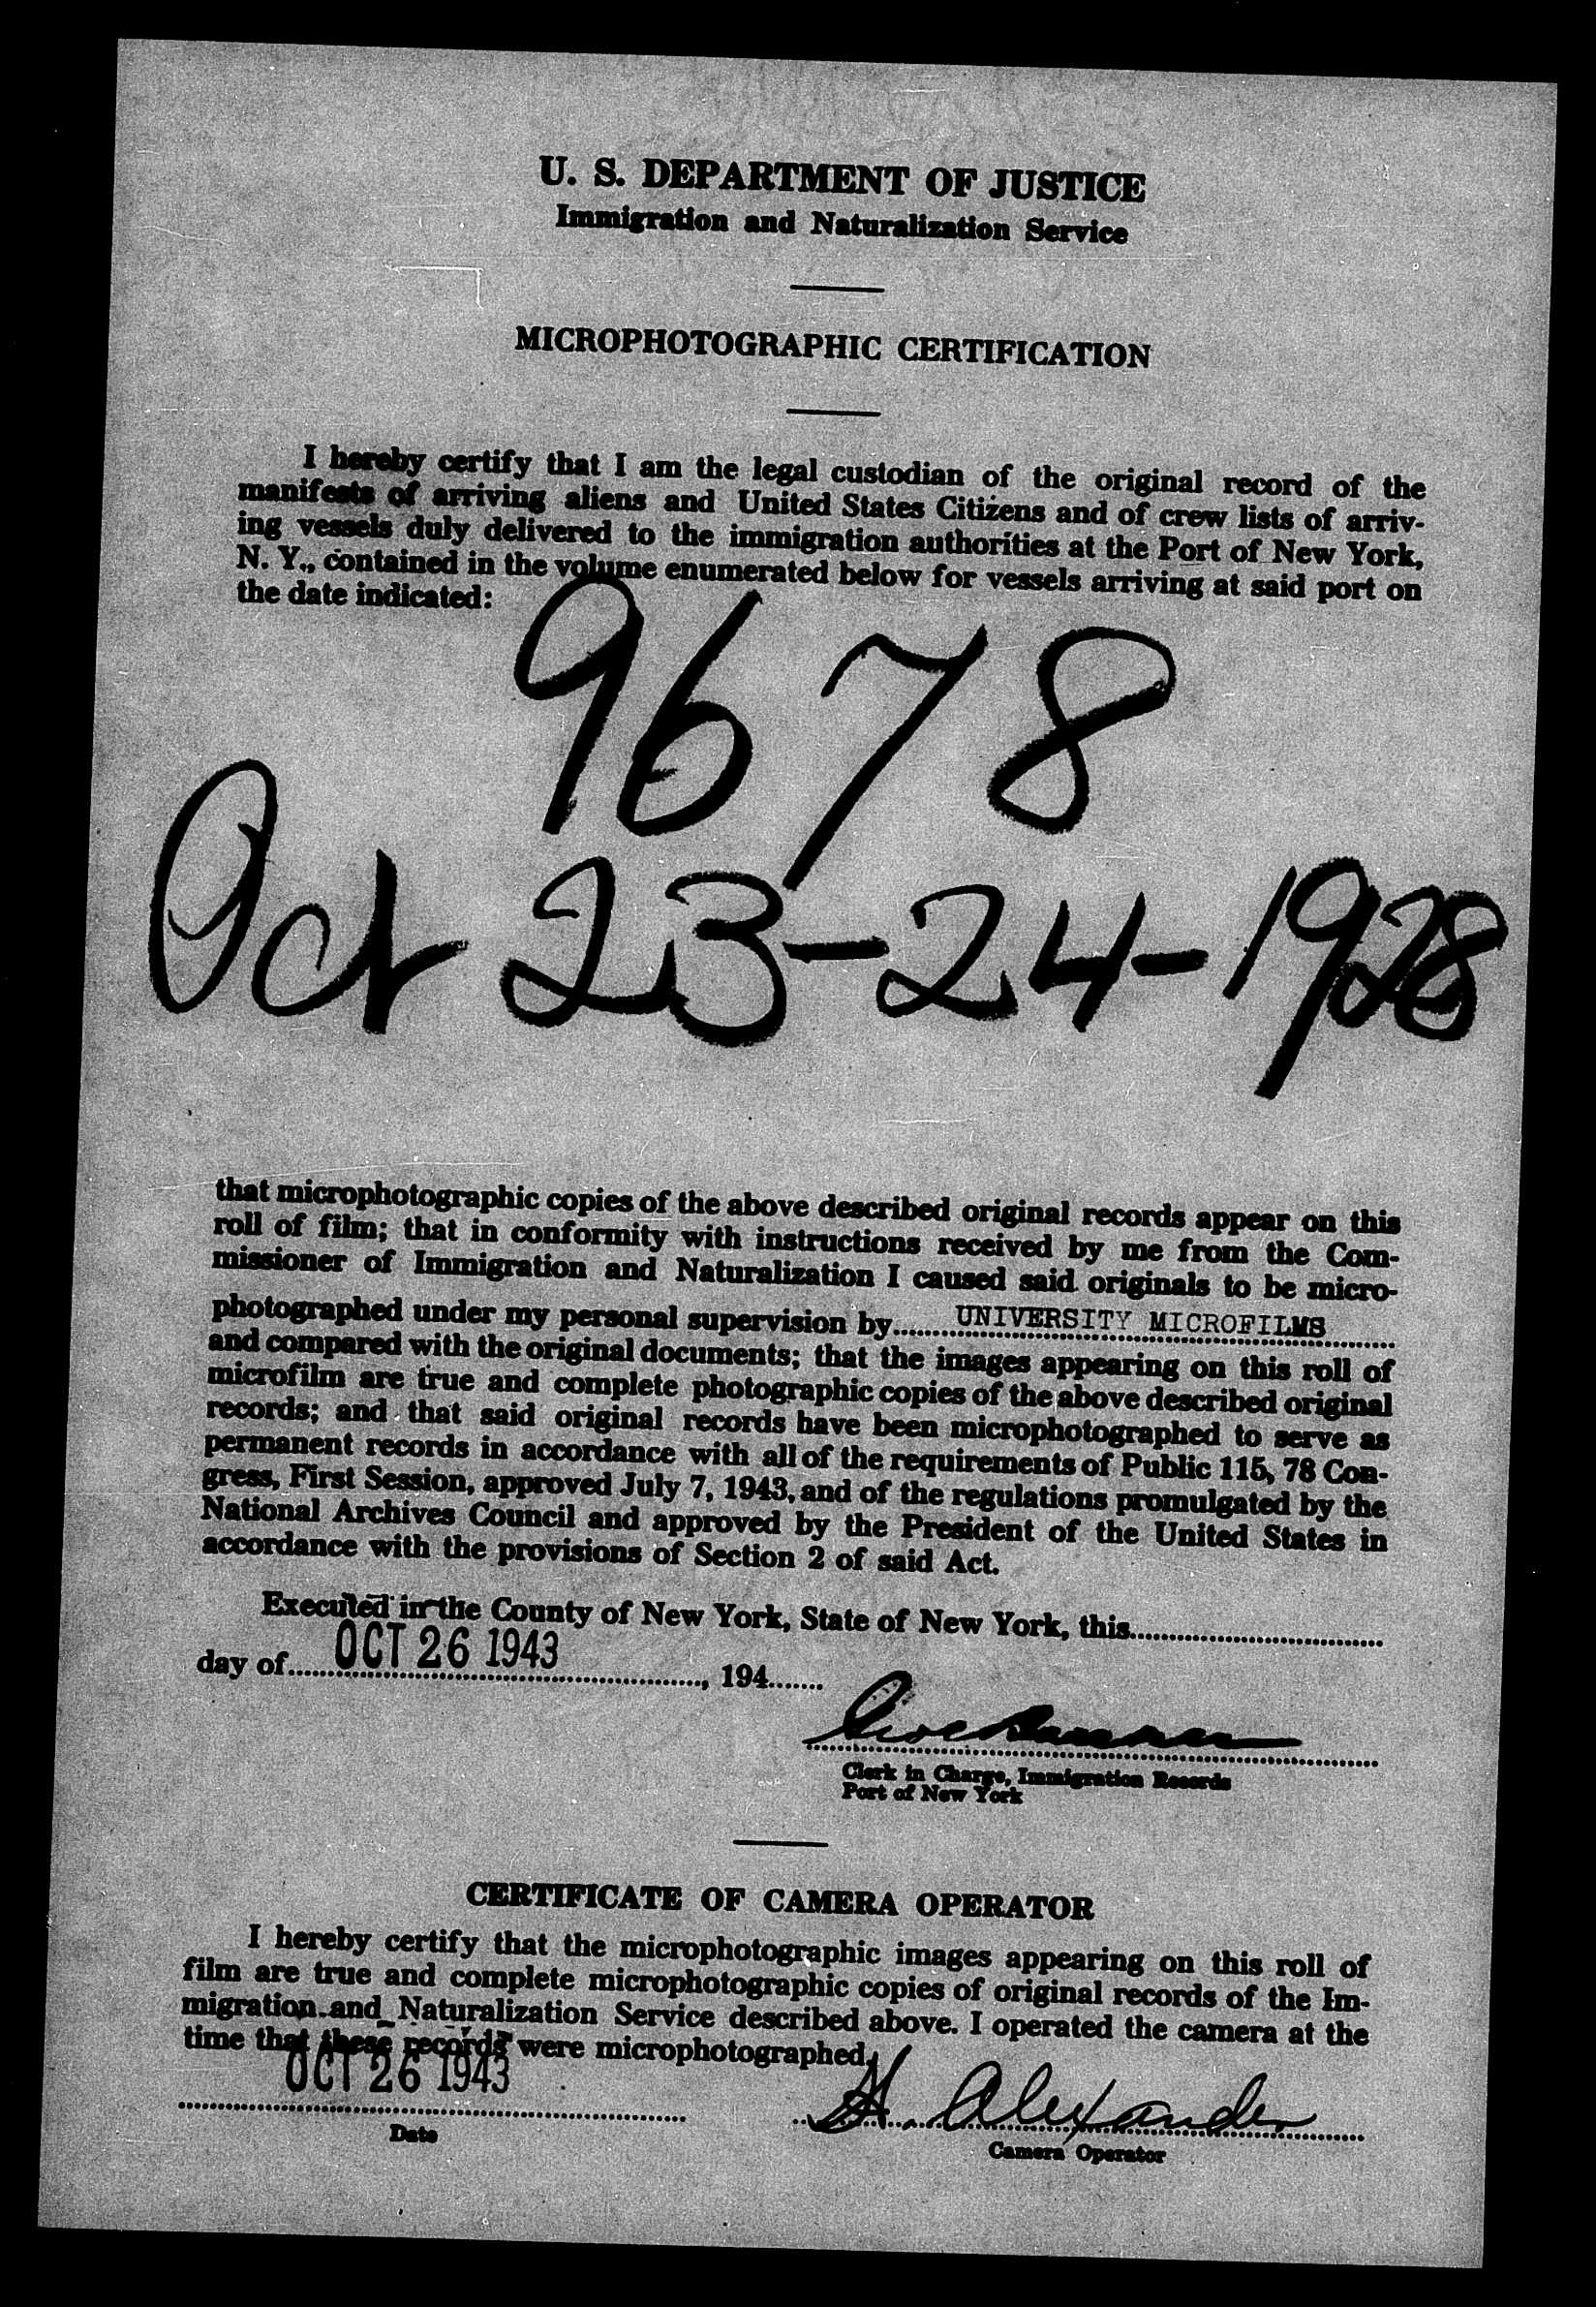 U. S. DEPARTMENT OF JUSTICE
Immigration and Naturalization Service
MICROPHOTOGRAPHIC CERTIFICATION
I hereby certify that I am the legal custodian of the original record of the
manifests of arriving aliens and United States Citizens and of crew lists of arriv-
ing vessels duly delivered to the immigration authorities at the Port of New York,
N. Y., contained in the volume enumerated below for vessels arriving at said port on
the date indicated:
9678
Oct 23-24-1928
that microphotographic copies of the above described original records appear on this
roll of film; that in conformity with instructions received by me from the Com-
missioner of Immigration and Naturalization I caused said originals to be micro-
photographed under my personal supervision by........UNIVERSITY MICROFILMS........
and compared with the original documents; that the images appearing on this roll of
microfilm are true and complete photographic copies of the above described original
records; and that said original records have been microphotographed to serve as
permanent records in accordance with all of the requirements of Public 115, 78 Con-
gress, First Session, approved July 7, 1943, and of the regulations promulgated by the
National Archives Council and approved by the President of the United States in
accordance with the provisions of Section 2 of said Act.
Executed in the County of New York, State of New York, this................
day of........OCT 26 1943................, 194.......
Clerk in Charge, Immigration Records
Port of New York
CERTIFICATE OF CAMERA OPERATOR
I hereby certify that the microphotographic images appearing on this roll of
film are true and complete microphotographic copies of original records of the Im-
migration and Naturalization Service described above. I operated the camera at the
time that these records were microphotographed.
OCT 26 1943
H. Alexander
Date
Camera Operator